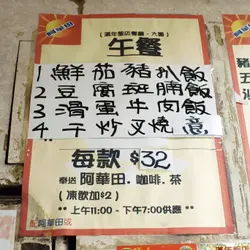 阿華田
(滿年飯店專廳‧六廳)
午餐
1 鮮茄豬扒飯
2 豆腐斑腩飯
3 滑蛋牛肉飯
4 干炒叉燒意
每款 $32
奉送 阿華田‧咖啡‧茶
(凍飲加$2)
** 上午11:00 - 下午7:00供應 **
阿華田